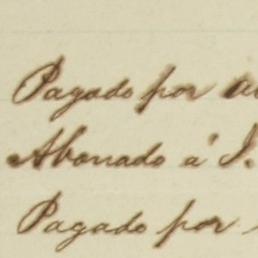 Pagado por
Abonado á J.
Pagado por